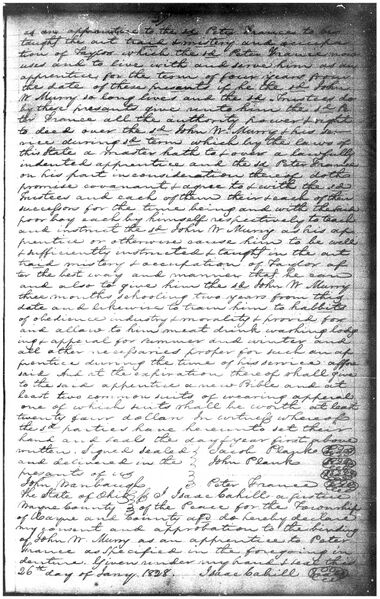 as an apprentice to the sd Peter France to be
taught the art trade & mistery and occupa
tion of Taylor which the sd Peter France now
uses and to live with and serve him as an
apprentice for the term of four years from
the date of these presents if he the sd John
W Murry so long lives and the sd Trustees do
by these presents give unto him the sd Pe
ter France all the authority power & right
to deed over the sd John W. Murry & his ser
vice during sd term which by the laws of
this State a Master hath to & over a lawfully
indented apprentice and the sd Peter France
on his part in consideration thereof doth
promise covanant & agree to & with the sd
Trustees and each of them their & each of their
successors for the time being and with the said
poor boy each by himself respectively to teach
and instruct the sd John W Murry as his ap
prentice or otherwise cause him to be well
& sufficiently instructed & taught in the art
trade mistery & occupation of Taylor af
ter the best way and manner that he can
and also to give him the sd John W Murry
three months schooling two years from this
date and likewise to train him to habbits
of obedience industry & morality & provide for
and allow to him meat drink washing lodg
ing & apparel for summer and winter and
all other necessaries proper for such an ap
prentice during the time of his service afore
said And at the expiration thereof shall give
to the said apprentice a new Bible and at
least two common suits of wearing apparel
one of which suits shall be worth at least
twenty four dollars In witness whereof
the sd parties have hereunto set their
hand and seals the day & year first above
written. Signed sealed Jacob Plank
and delivered in the John Plank
presants of us
John Peter France
The State of Ohio I Isaac Cahill a justice
Wayne County of the Peace for the Township
of Wayne and County afd do hereby declare
my assent and approbation to the binding
of John W. Murry as an apprentice to Peter
France as specified in the foregoing in
denture. Given under my hand & seal this
26th day of Jany. 1828. Isaac Cahill